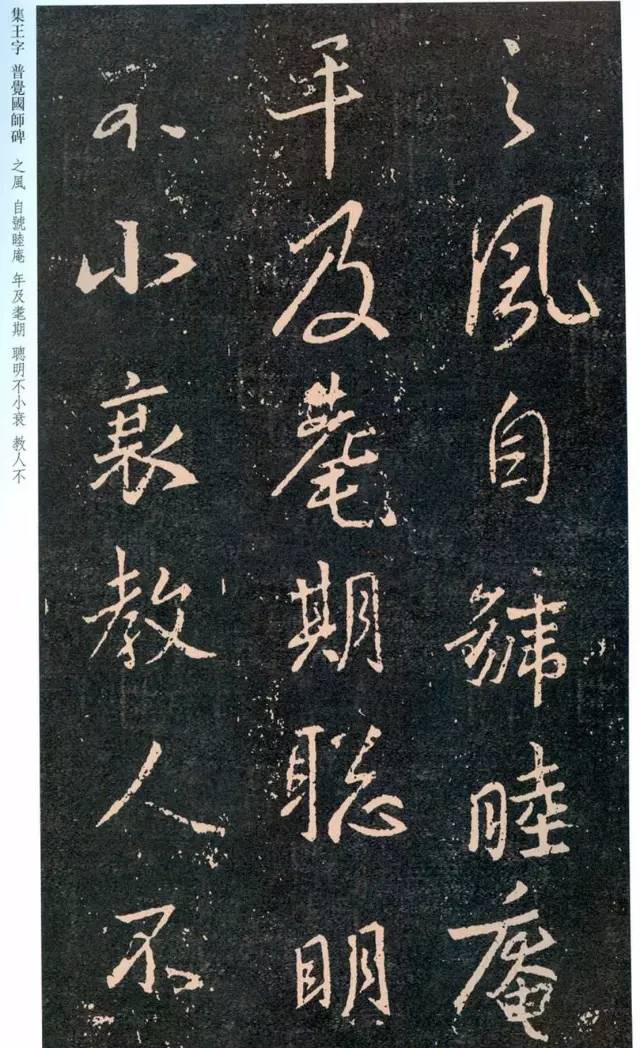 之風自號睦庵
年及耄期聡明
不小衰教人不
集王字 普覺國師碑 之風 自號睦庵 年及耄期 聰明不小衰 教人不